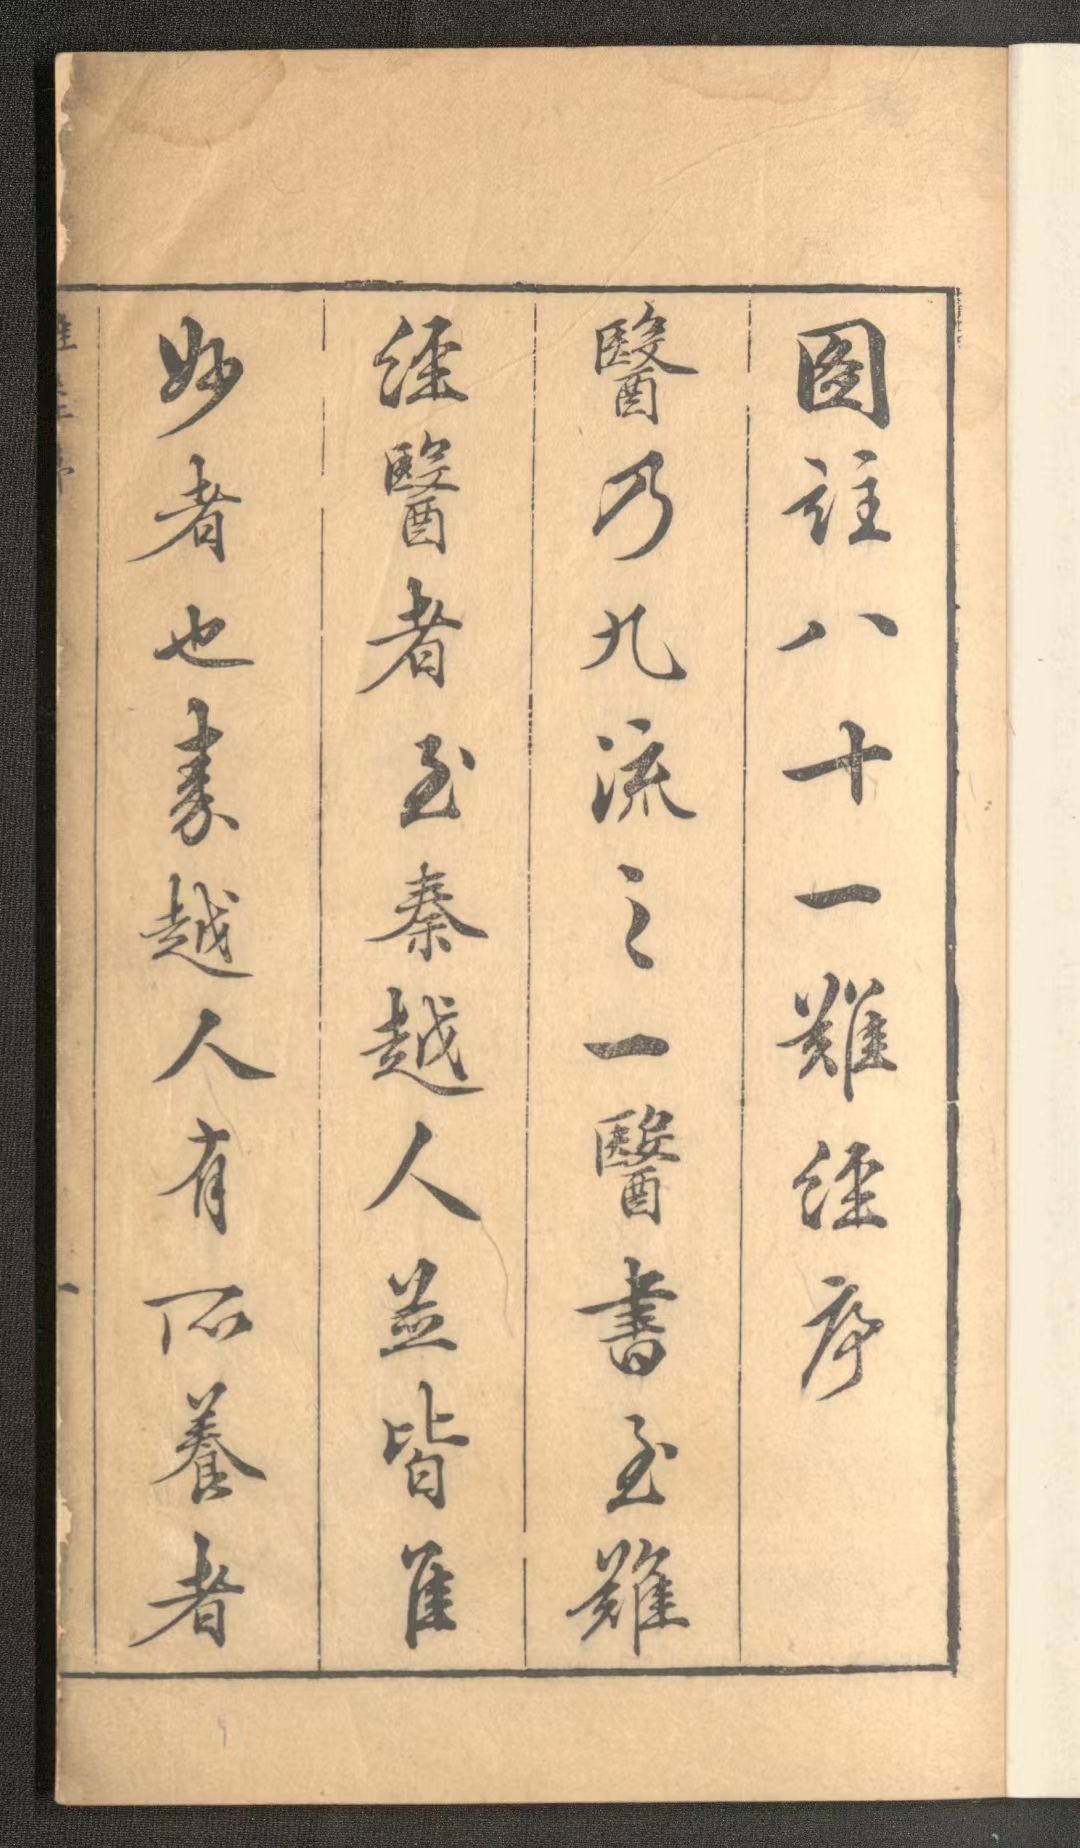 圖註八十一難經序
醫乃九流之一醫書至難
經醫者至秦越人並皆
妙者也越人有所養者